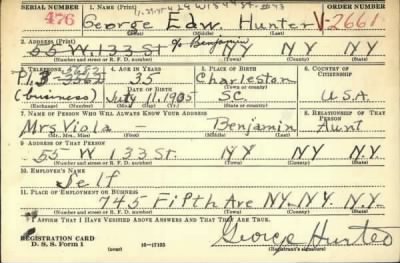 SERIAL NUMBER 1. NAME (Print) ORDER NUMBER
476 George Edw. Hunter V-2661
(First) (Middle) (Last)
2. ADDRESS (Print) % Benjamin
55 W. 133 St NY NY NY
(Number and street or R. F. D. number) (Town) (County) (State)
3. TELEPHONE 4. AGE IN YEARS 5. PLACE OF BIRTH 6. COUNTRY OF CITIZENSHIP
PL3 35 Charleston
DATE OF BIRTH (Town or county)
(business) July 11, 1905 SC. U.S.A.
(Exchange) (Number) (Mo.) (Day) (Yr.) (State or country)
7. NAME OF PERSON WHO WILL ALWAYS KNOW YOUR ADDRESS 8. RELATIONSHIP OF THAT PERSON
Mrs Viola - Benjamin Aunt
(Mr., Mrs., Miss) (First) (Middle) (Last)
9. ADDRESS OF THAT PERSON
55 W. 133 St. NY NY NY
(Number and street or R. F. D. number) (Town) (County) (State)
10. EMPLOYER'S NAME
Self
11. PLACE OF EMPLOYMENT OR BUSINESS
745 Fifth Ave NY. NY. N.Y.
(Number and street or R. F. D. number) (Town) (County) (State)
I AFFIRM THAT I HAVE VERIFIED ABOVE ANSWERS AND THAT THEY ARE TRUE.
REGISTRATION CARD
D. S. S. Form 1 16-17105 George Hunter
(Registrant's signature)